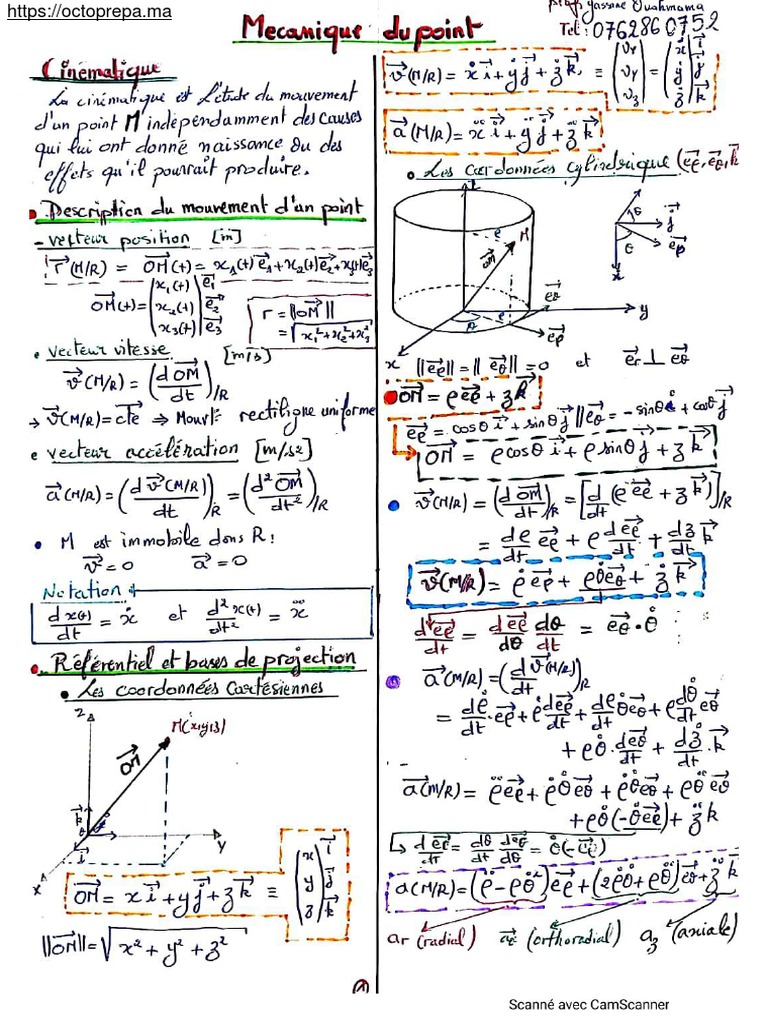 https://octoprepa.ma
Mecanique du point
Prof. Yassine Ouahmama
Tel: 0762860752
Cinématique
La cinématique est l'étude du mouvement
d'un point M indépendamment des causes
qui lui ont donné naissance ou des
effets qu'il pourrait produire.
Description du mouvement d'un point
- vecteur position [m]
r⃗(M/R) = OM⃗(t) = x₁(t)e⃗₁ + x₂(t)e⃗₂ + x₃(t)e⃗₃
OM⃗(t) = (x₁(t) e⃗₁
x₂(t) e⃗₂
x₃(t) e⃗₃
r = ||OM⃗||
= √(x₁² + x₂² + x₃²)
• vecteur vitesse [m/s]
v⃗(M/R) = (d OM⃗/dt)/R
→ v⃗(M/R) = cte⃗ ⇒ Mouvt rectiligne uniforme
• vecteur accélération [m/s2]
a⃗(M/R) = (d v⃗(M/R)/dt)/R = (d² OM⃗/dt²)/R
• M est immobile dans R:
v⃗ = 0 a⃗ = 0
Notation:
d x(t)/dt = ẋ et d² x(t)/dt² = ẍ
• Référentiel et bases de projection
• Les coordonnées Cartésiennes
Z
M(x,y,z)
OM⃗
k⃗
j⃗
i⃗
y
x
OM⃗ = x i⃗ + y j⃗ + z k⃗ ≡ (x i⃗
y j⃗
z k⃗
||OM⃗|| = √(x² + y² + z²)
v⃗(M/R) = ẋ i⃗ + ẏ j⃗ + ż k⃗, ≡ (vx vy vz) = (ẋ i⃗ ẏ j⃗ ż k⃗
a⃗(M/R) = ẍ i⃗ + ÿ j⃗ + z̈ k⃗
• Les coordonnées cylindrique (e⃗ρ, e⃗θ, k
M
ρ
OM⃗
e⃗θ
y
θ
ρ
e⃗ρ
x
θ
j⃗
θ
e⃗ρ
x
||e⃗ρ|| = || e⃗θ|| = 0 et e⃗r ⊥ e⃗θ
OM⃗ = ρ e⃗ρ + z k⃗
e⃗ρ = cosθ i⃗ + sinθ j⃗ || e⃗θ = -sinθ i + cosθ j⃗
OM⃗ = ρ cosθ i⃗ + ρ sinθ j⃗ + z k⃗
• v⃗(M/R) = (d OM⃗/dt)/R = [d/dt (ρ e⃗ρ + z k⃗)]/R
= dρ/dt e⃗ρ + ρ d e⃗ρ/dt + dz/dt k⃗
v⃗(M/R) = ρ̇ e⃗ρ + ρθ̇ e⃗θ + ż k⃗
d e⃗ρ/dt = d e⃗ρ/dθ dθ/dt = e⃗θ · θ̇
• a⃗(M/R) = (d v⃗(M/R)/dt)R
= dρ̇/dt · e⃗ρ + ρ̇ d e⃗ρ/dt + dρ/dt θ̇ e⃗θ + ρ dθ̇/dt e⃗θ
+ ρθ̇ · d e⃗θ/dt + dż/dt · k⃗
a⃗(M/R) = ρ̈ e⃗ρ + ρ̇ θ̇ e⃗θ + ρ̇ θ̇ e⃗θ + ρθ̈ e⃗θ
+ ρθ̇ (-θ̇ e⃗ρ) + z̈ k
↳ d e⃗ρ/dt = dθ/dt d e⃗ρ/dθ = θ̇ (-e⃗ρ)
a(M/R) = (ρ̈ - ρθ̇²) e⃗ρ + (2ρ̇θ̇ + ρθ̈) e⃗θ + z̈ k⃗
ar (radial) (orthoradial) a₃ (axiale)
①
Scanné avec CamScanner